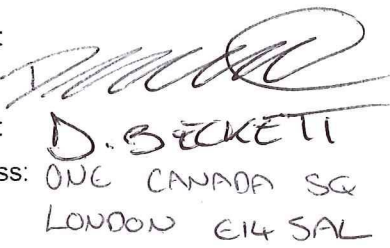 :
:
D. BECKETT
ss: ONE CANADA SQ
LONDON E14 5AL